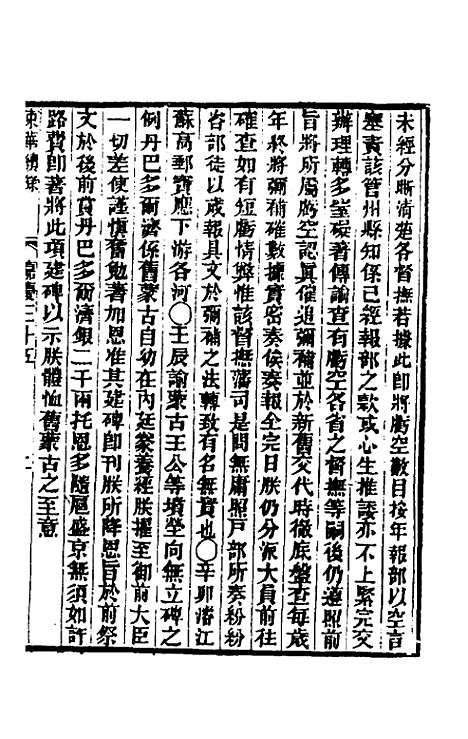 未經分晰清楚各督撫若據此卽將虧空數目按年報部以空言
塞責該管州縣知係已經報部之款或心生推諉亦不上緊完交
辦理轉多窒礙著傳諭查有虧空各省之督撫等嗣後仍遵照前
旨將所屬虧空認眞催追彌補並於新舊交代時徹底盤查每歲
年終將彌補確數據實密奏俟奏報全完日朕仍分派大員前往
確查如有短虧情弊惟該督撫藩司是問無庸照戶部所奏紛紛
咨部徒以成報具文於彌補之法轉致有名無實也〇辛卯濬江
蘇高郵寶應下游各河〇壬辰諭蒙古王公等墳塋向無立碑之
例丹巴多爾濟係舊蒙古自幼在內廷豢養經朕擢至御前大臣
一切差使謹愼奮勉著加恩准其建碑卽刊朕所降恩旨於前祭
文於後前賞丹巴多爾濟銀二千兩托恩多隨扈盛京無須如許
路費卽著將此項建碑以示朕體恤舊蒙古之至意
東華續錄 嘉慶三十五